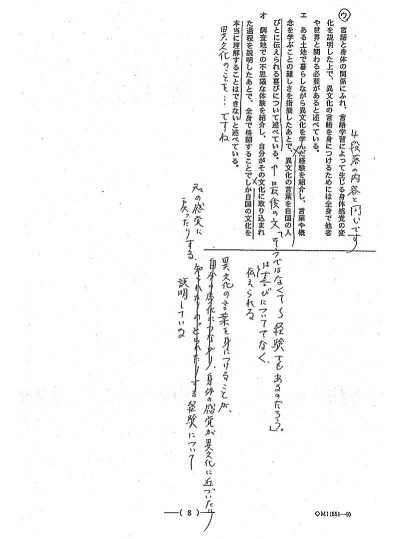 ウ 言語と身体の関係にふれ、言語学習によって生じる身体感覚の変
化を説明した上で、異文化の言語を身につけるためには全身で他者
や世界と関わる必要があると述べている。
エ ある土地で暮らしながら異文化を学んだ経験を紹介し、言葉や概
念を学ぶことの難しさを指摘したあとで、異文化の言葉を自国の人
びとに伝えられる喜びについて述べている。
オ 調査地での不思議な体験を紹介し、自分がその文化に取り込まれ
た過程を説明したあとで、全身で格闘することでしか自国の文化を
本当に理解することはできないと述べている。
4段落の内容と同じです
↑最後の文
ではなくて〜経験でもあるのだろう。」
は喜びについてでなく、
伝えられる
異文化のことを…ですね
異文化の言葉を身につけることが、
身体の感覚が異文化に近づいたり
元の感覚に
戻ったりする
経験について
説明している
(8)
◇M1(651—9)